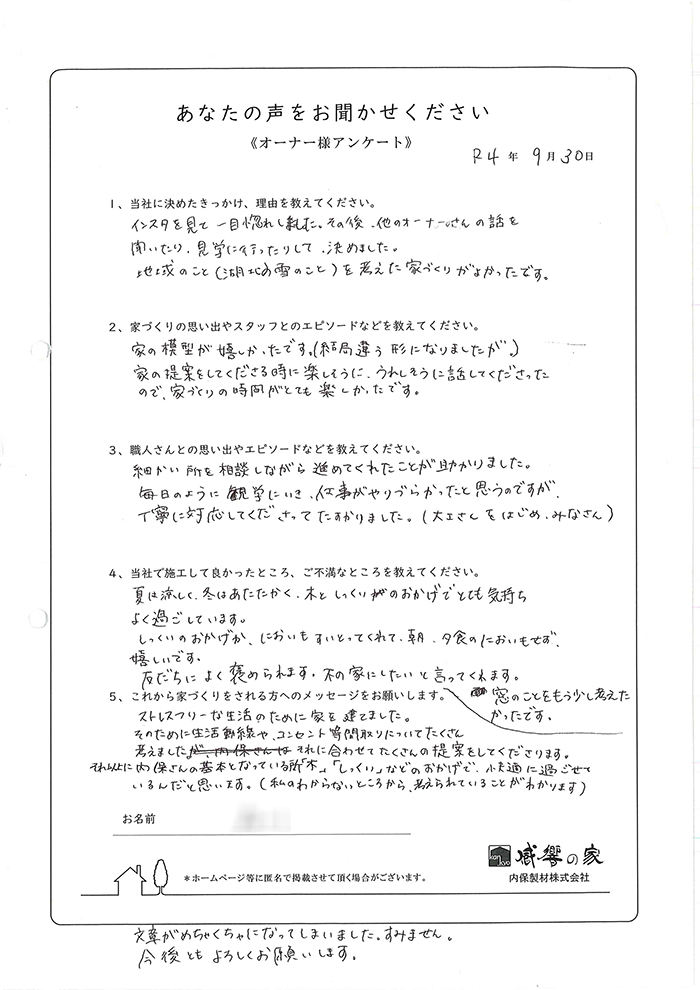 あなたの声をお聞かせください
《オーナー様アンケート》
R4 年 9 月 30 日
1、当社に決めたきっかけ、理由を教えてください。
インスタを見て一目惚れしました。その後、他のオーナーさんの話を
聞いたり、見学に行ったりして、決めました。
地域のこと(湖北の雪のこと)を考えた家づくりがよかったです。
2、家づくりの思い出やスタッフとのエピソードなどを教えてください。
家の模型が嬉しかったです。(結局違う形になりましたが。)
家の提案をしてくださる時に楽しそうに、うれしそうに話してくださった
ので、家づくりの時間がとても楽しかったです。
3、職人さんとの思い出やエピソードなどを教えてください。
細かい所を相談しながら進めてくれたことが助かりました。
毎日のように観学にいき、仕事がやりづらかったと思うのですが、
丁寧に対応してくださってたすかりました。(大工さんをはじめ、みなさん)
4、当社で施工して良かったところ、ご不満なところを教えてください。
夏は涼しく、冬はあたたかく、木としっくいのおかげでとても気持ち
よく過ごしています。
しっくいのおかげか、においもすいとってくれて、朝、夕食のにおいもせず、
嬉しいです。
友だちによく褒められます。木の家にしたいと言ってくれます。
窓のことをもう少し考えた
かったです。
5、これから家づくりをされる方へのメッセージをお願いします。
ストレスフリーな生活のために家を建てました。
そのために生活動線や、コンセント等間取りについてたくさん
考えました それに合わせてたくさんの提案をしてくださります。
それ以上に内保さんの基本となっている所「木」「しっくい」などのおかげで、快適に過ごせて
いるんだと思います。(私のわからないところから、考えられていることがわかります)
お名前
＊ホームページ等に匿名で掲載させて頂く場合がございます。
kan kyo 感響の家
内保製材株式会社
文章がめちゃくちゃになってしまいました。すみません。
今後ともよろしくお願いします。